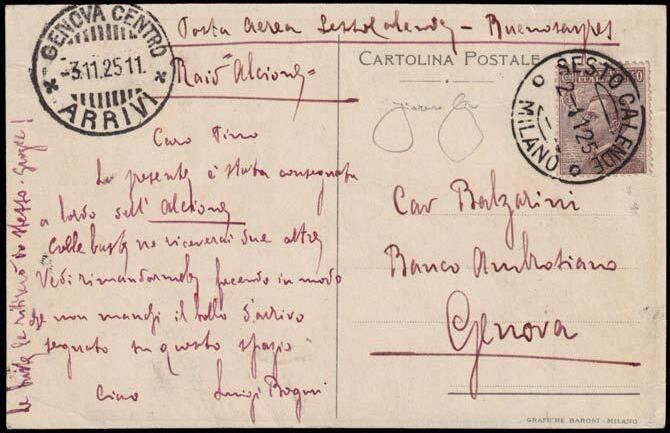 Posta Aerea Sesto Calende - Buenosayres
Raid "Alcione"
GENOVA CENTRO
-3.11.25 11.
ARRIVI
CARTOLINA POSTALE
SESTO CALENDE
MILANO
Caro Tino
La presente è stata consegnata
a bordo dell'Alcione
Colle buste ne riceverai due altre
Vedi rimandarmele facendo in modo
che non manchi il bollo d'arrivo
segnato su questo spazio
Ciao Luigi
Le buste le ritirerò io stesso. Grazie!
Cav Balzarini
Banco Ambrosiano
Genova
GRAFICHE BARONI - MILANO